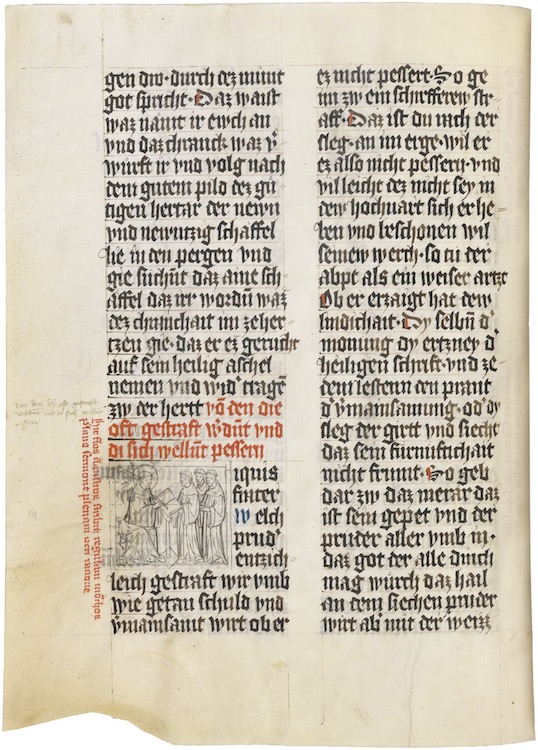 gen dw · durch dez mūnt
got spricht · Daz waist
waz namt ir ewch an
vnd daz chranck waz v̄
wurft ir vnd volg nach
dem gutem pild dez gū
tigen hertar der newn
vnd newntzig schaffel
lie in den pergen vnd
gie suchūt daz aine sch
äffel daz irr wordū waz
dez chranchait im ze her
tzen gie · daz er ez gerucht
auf sein heilig achsel
nemen vnd wid' tragē
zw der hertt vō den die
oft gestraft w'dūt vnd
di sich wellūt pessern
iquis
frater
Welch
prud'
entzich
leich gestraft wir vmb
wie getan schuld vnd
v̄mainsamt wirt ob er
ez nicht pessert · So ge
im zw ein schirfferew str
aff · Daz ist du nach der
sleg · an im erge · wil er
ez also nicht pessern · vnd
vil leicht dez nicht sey in
dew hochuart sich er he
ben vnd beschonen wil
seinew werch · so tu der
abpt als ein weiser artze
Ob er erzaigt hat dew
lindichait · Dy selbū d'
monung dy ertzney d'
heiligen schrift · vnd ze
dem lesten den prant
d' v̄mainsamung · od' dy
sleg der girtt vnd siecht
daz sein furnūftichait
nicht frumt · So geb
dar zw daz merar daz
ist sein gepet vnd der
pruder aller vmb in ·
daz got der alle dinch
mag wurch daz hail
an dem siechen pruder
wirt ab mit der weizz